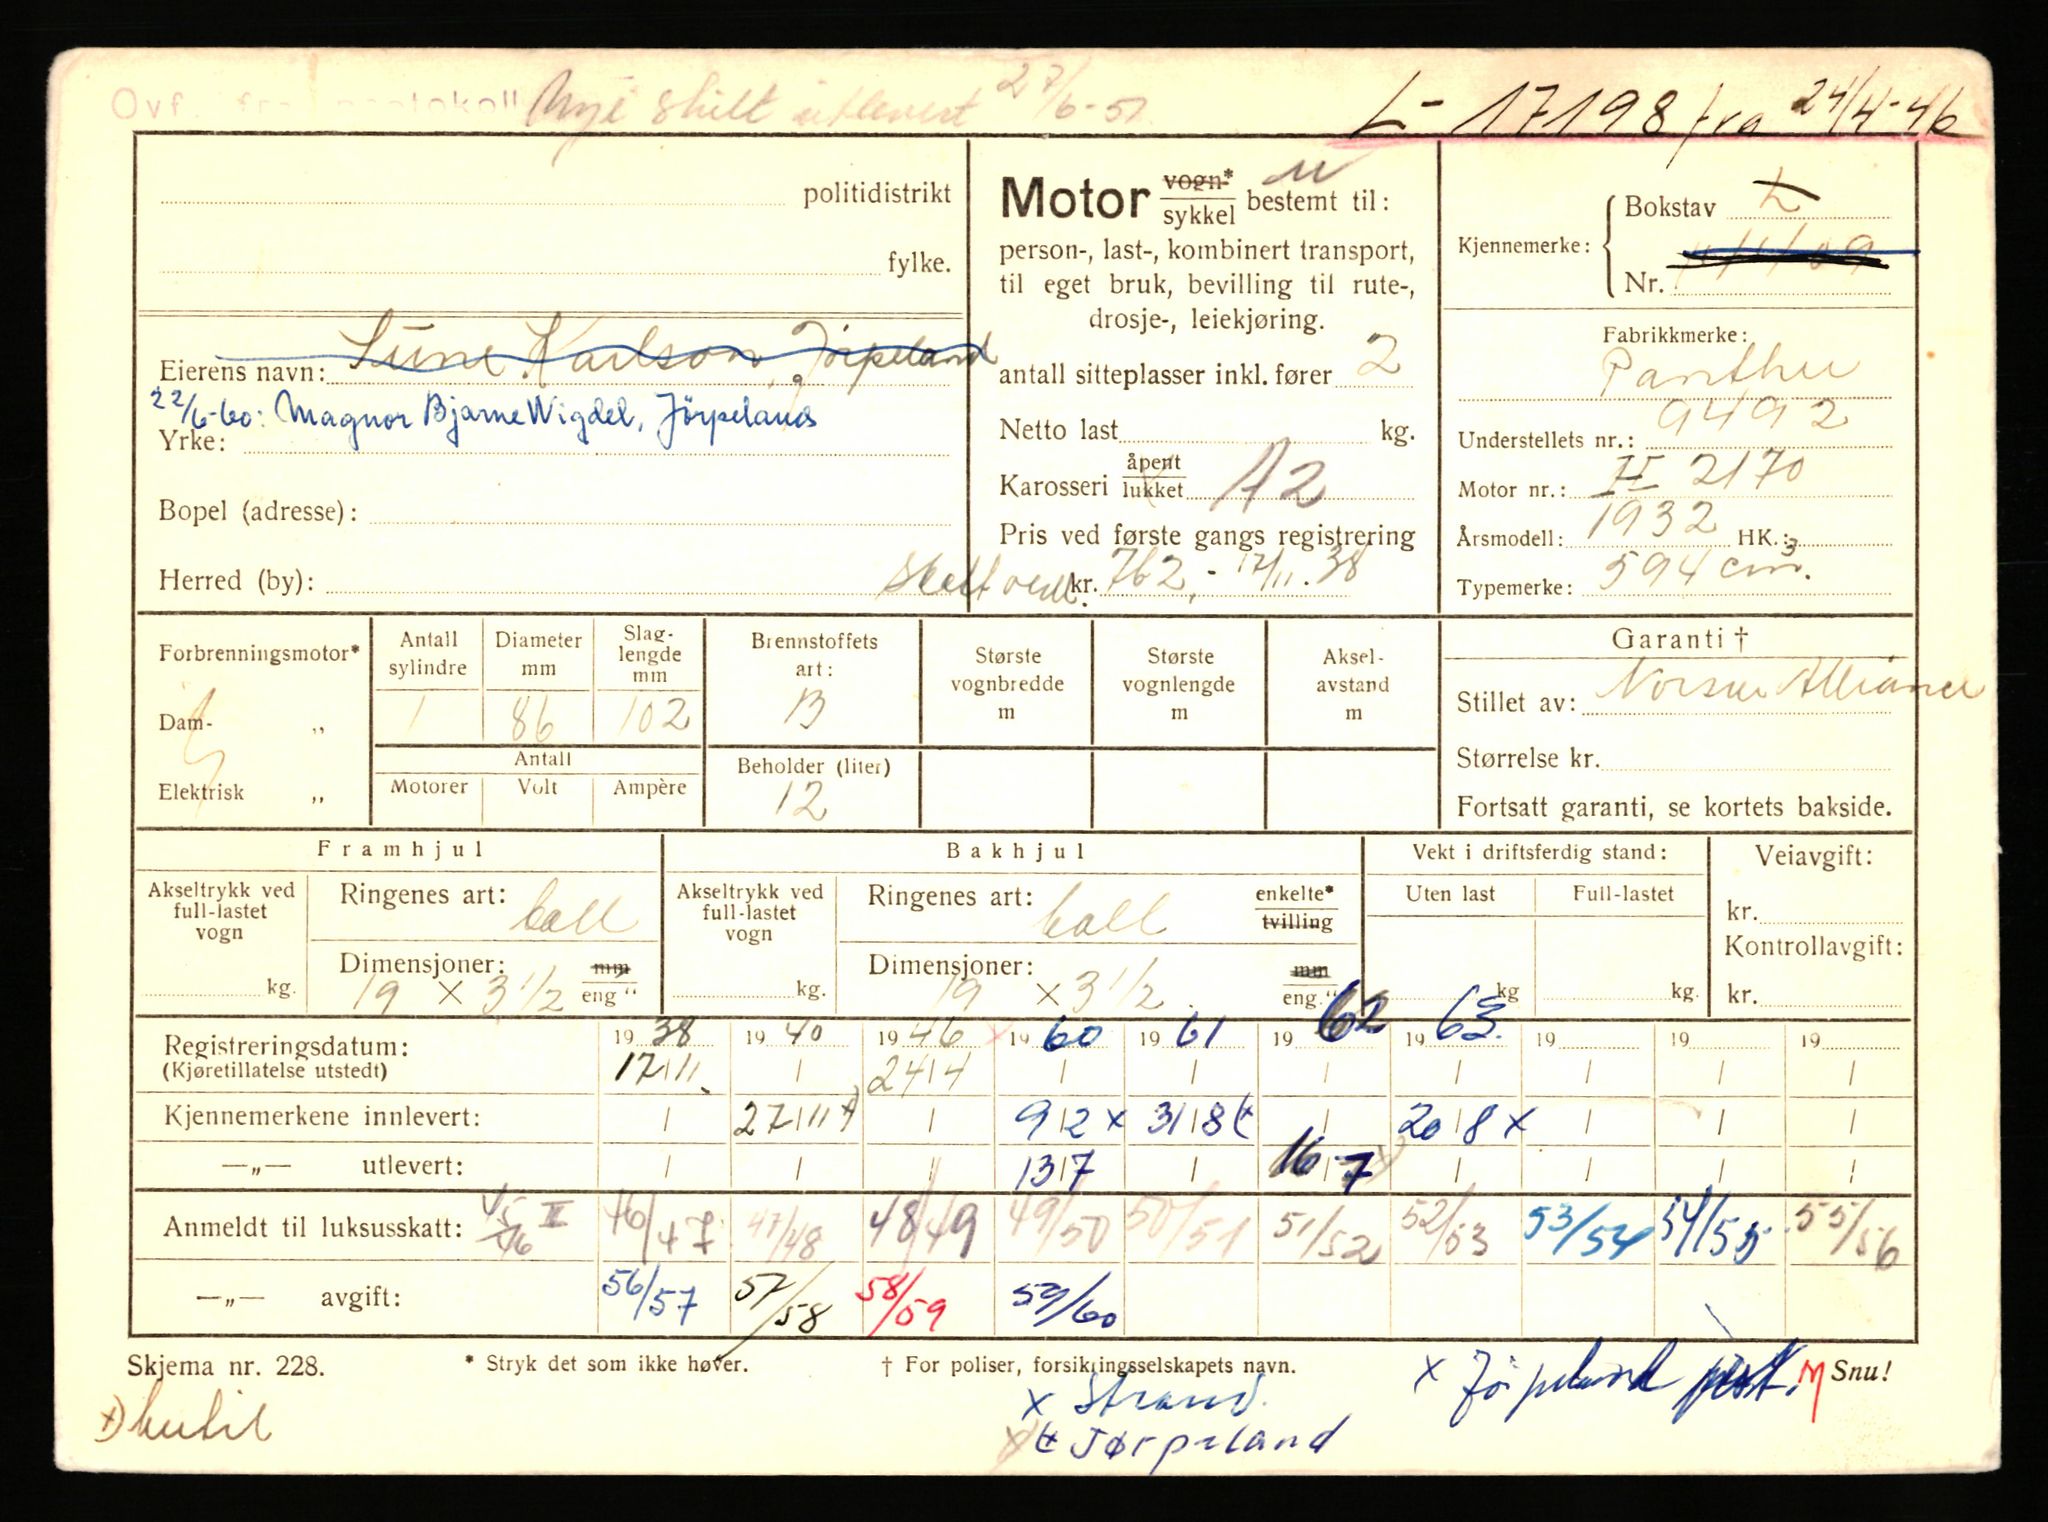 Nye skilt utlevert 27/6-51
L- 17198 fra 24/4-46
politidistrikt
fylke.
Eierens navn: Sune Karlson, Jørpeland
22/6-60: Magnor Bjarne Wigdel, Jörpeland
Yrke:
Bopel (adresse):
Herred (by):
Motor vogn* sykkel bestemt til:
person-, last-, kombinert transport,
til eget bruk, bevilling til rute-,
drosje-, leiekjøring.
antall sitteplasser inkl. fører 2
Netto last kg.
Karosseri åpent lukket A2
Pris ved første gangs registrering
kr. 762,- 17/11.38
Kjennemerke: Bokstav L
Nr.
Fabrikkmerke:
Panther
Understellets nr.: 9492
Motor nr.: H 2170
Årsmodell: 1932 HK.:
Typemerke: 594 cm3.
Forbrenningsmotor*
Dam- „
Elektrisk „
Antall sylindre
1
Diameter mm
86
Slag- lengde mm
102
Antall
Motorer Volt Ampère
Brennstoffets art:
B
Beholder (liter)
12
Største vognbredde m
Største vognlengde m
Aksel- avstand m
Garanti †
Stillet av: Norske Alliance
Størrelse kr.
Fortsatt garanti, se kortets bakside.
Framhjul
Akseltrykk ved full-lastet vogn
kg.
Ringenes art: ball
Dimensjoner: mm
19 x 3 1/2 eng "
Bakhjul
Akseltrykk ved full-lastet vogn
kg.
Ringenes art: ball enkelte* tvilling
Dimensjoner: mm
19 x 3 1/2 eng. "
Vekt i driftsferdig stand:
Uten last Full-lastet
kg kg.
Veiavgift:
kr.
Kontrollavgift:
kr.
Registreringsdatum: 19 38 19 40 19 46 19 60 19 61 19 62 19 63. 19 19 19
(Kjøretillatelse utstedt) 17/11. 24/4
Kjennemerkene innlevert: 27/11 +) 9/2 x 31/8 20/8 x
—„— utlevert: 13/7 16/7
Anmeldt til luksusskatt: 45/46 II 46/47 47/48 48/49 49/50 50/51 51/52 52/53 53/54 54/55 55/56
—„— avgift: 56/57 57/58 58/59 59/60
Skjema nr. 228. * Stryk det som ikke høver. † For poliser, forsikringsselskapets navn. Snu!
x Jörpeland
x Strand.
Jørpeland